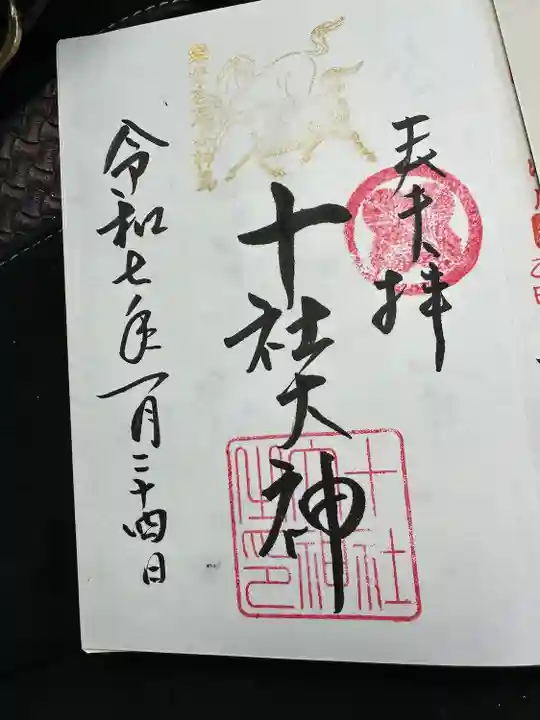 奉拝
十社大神
十社
大神
之印
令和七年一月二十四日